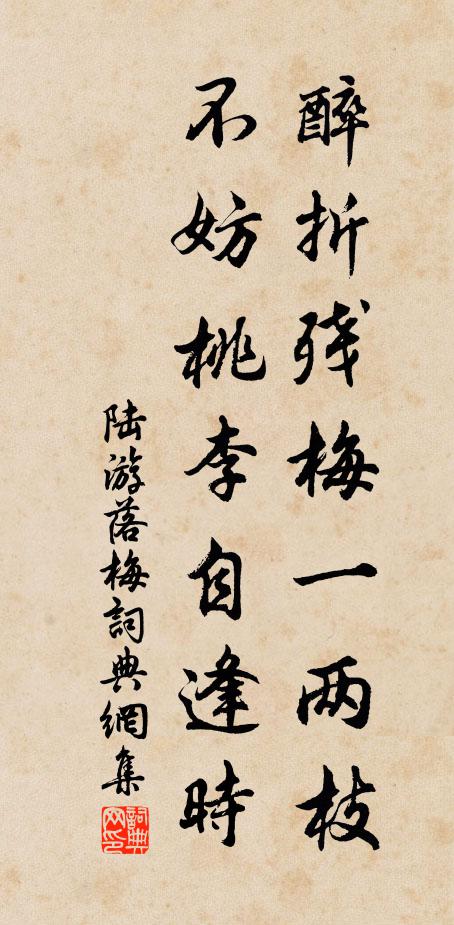 醉折残梅一两枝
不妨桃李自逢時
陸游落梅詞典網集
詞典网印